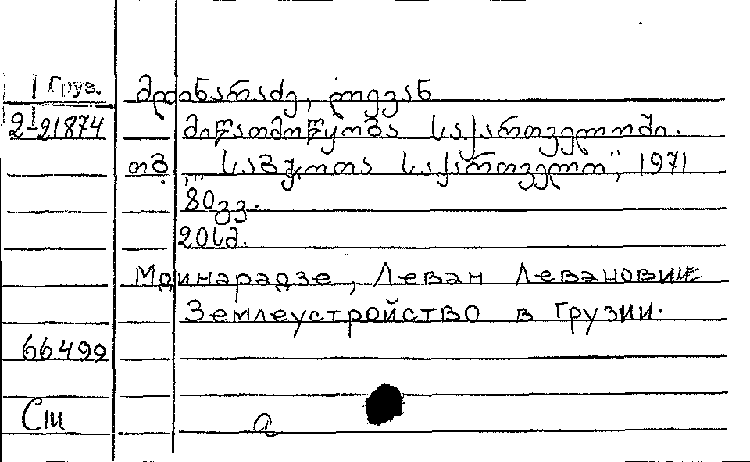 1 Груз.
2-21874
მდინარაძე, ლევან
მიწათმოწყობა საქართველოში.
თბ., "საბჭოთა საქართველო", 1971
80გვ.
20სმ.
Мдинарадзе, Леван Леванович
Землеустройство в Грузии.
66499
Сш
a